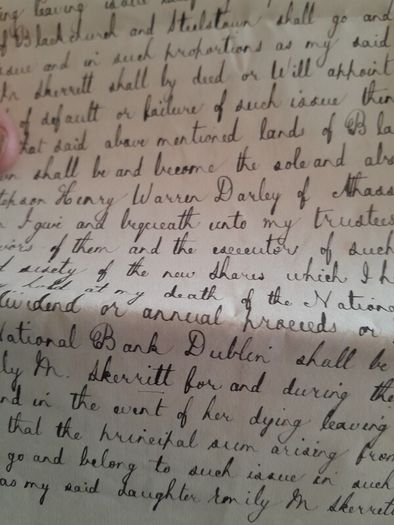 leaving issue
of Blackchurch and Steelstown shall go and
issue and in such proportions as my said
Skerrett shall by deed or Will appoint
of default or failure of such issue then
that said above mentioned lands of Bla
shall be and become the sole and abs
stepson Henry Warren Darley of
I give and bequeath unto my trustees
of them and the executors of such
sixty of the new shares which I h
at my death of the Nationa
dividend or annual proceeds or
National Bank Dublin shall be
ly M. Skerritt for and during the
nd in the event of her dying leaving
that the principal sum arising from
go and belong to such issue in such
as my said daughter Emily M Skerrett